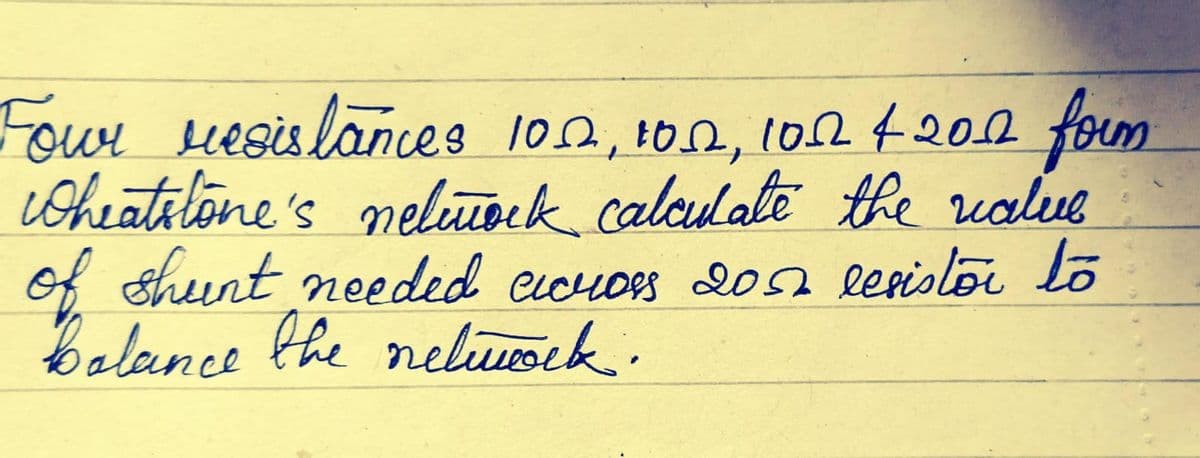 Four resistances 10Ω, 10Ω, 10Ω & 20Ω form
Wheatstone's network calculate the value
of shunt needed across 20Ω resistor to
balance the network.